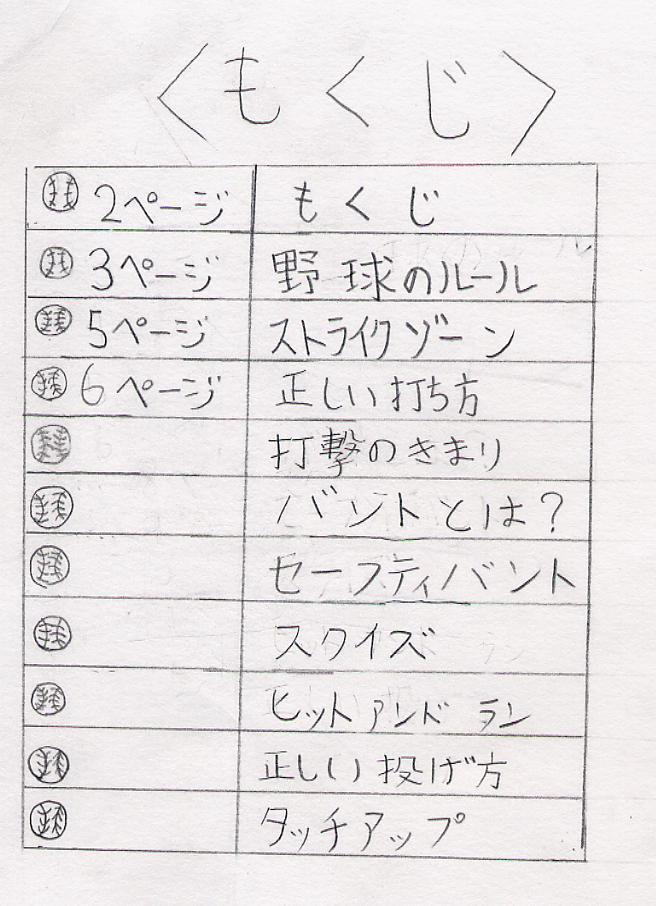 〈もくじ〉
2ページ もくじ
3ページ 野球のルール
5ページ ストライクゾーン
6ページ 正しい打ち方
打撃のきまり
バントとは?
セーフティバント
スクイズ
ヒットアンドラン
正しい投げ方
タッチアップ